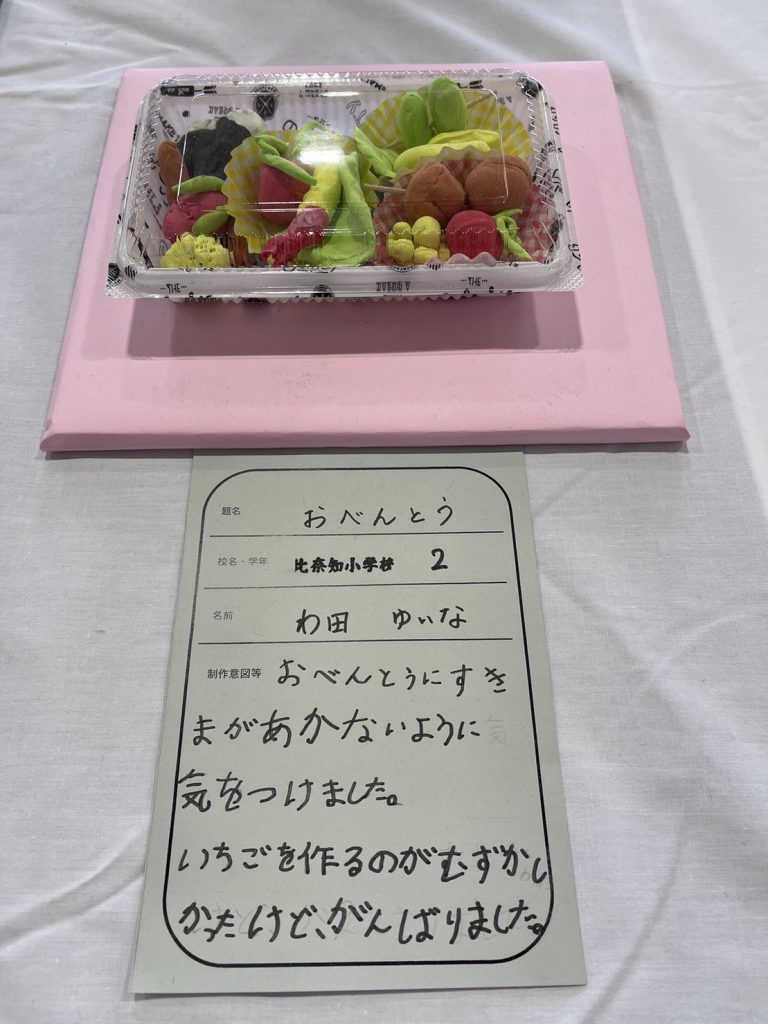 題名 おべんとう
校名・学年 比奈知小学校 2
名前 わ田 ゆいな
制作意図等 おべんとうにすき
まがあかないように
気をつけました。
いちごを作るのがむずかし
かったけど、がんばりました。